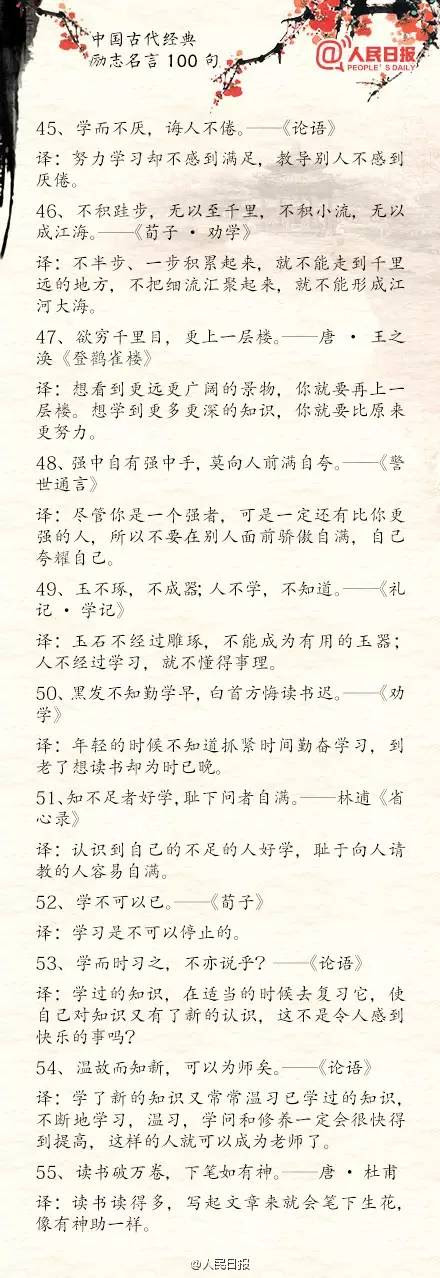 中国古代经典
励志名言100句
@人民日报
PEOPLE'S DAILY
45、学而不厌，诲人不倦。——《论语》
译：努力学习却不感到满足，教导别人不感到
厌倦。
46、不积跬步，无以至千里，不积小流，无以
成江海。——《荀子·劝学》
译：不半步、一步积累起来，就不能走到千里
远的地方，不把细流汇聚起来，就不能形成江
河大海。
47、欲穷千里目，更上一层楼。——唐·王之
涣《登鹳雀楼》
译：想看到更远更广阔的景物，你就要再上一
层楼。想学到更多更深的知识，你就要比原来
更努力。
48、强中自有强中手，莫向人前满自夸。——《警
世通言》
译：尽管你是一个强者，可是一定还有比你更
强的人，所以不要在别人面前骄傲自满，自己
夸耀自己。
49、玉不琢，不成器；人不学，不知道。——《礼
记·学记》
译：玉石不经过雕琢，不能成为有用的玉器；
人不经过学习，就不懂得事理。
50、黑发不知勤学早，白首方悔读书迟。——《劝
学》
译：年轻的时候不知道抓紧时间勤奋学习，到
老了想读书却为时已晚。
51、知不足者好学，耻下问者自满。——林逋《省
心录》
译：认识到自己的不足的人好学，耻于向人请
教的人容易自满。
52、学不可以已。——《荀子》
译：学习是不可以停止的。
53、学而时习之，不亦说乎？——《论语》
译：学过的知识，在适当的时候去复习它，使
自己对知识又有了新的认识，这不是令人感到
快乐的事吗？
54、温故而知新，可以为师矣。——《论语》
译：学了新的知识又常常温习已学过的知识，
不断地学习，温习，学问和修养一定会很快得
到提高，这样的人就可以成为老师了。
55、读书破万卷，下笔如有神。——唐·杜甫
译：读书读得多，写起文章来就会笔下生花，
像有神助一样。
@人民日报